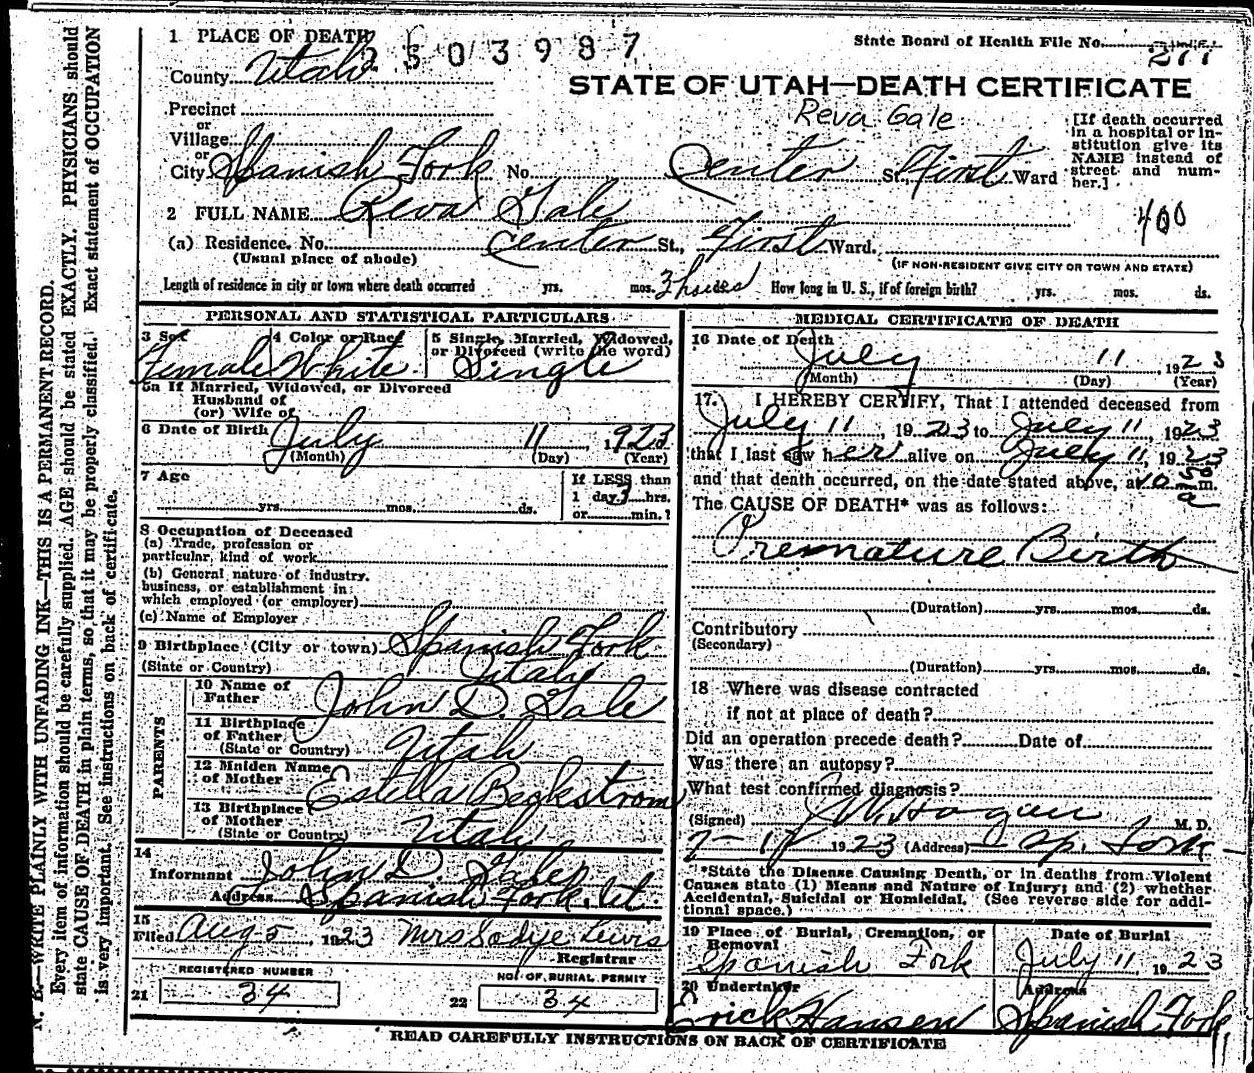 1 PLACE OF DEATH 2503987 State Board of Health File No. 277
County Utah
STATE OF UTAH—DEATH CERTIFICATE
Precinct
Reva Gale
or
Village
or
City Spanish Fork No. Center St. First Ward
[If death occurred in a hospital or institution give its NAME instead of street and number.]
2 FULL NAME Reva Gale
400
(a) Residence. No. Center St., First Ward.
(Usual place of abode) (IF NON-RESIDENT GIVE CITY OR TOWN AND STATE)
Length of residence in city or town where death occurred yrs. mos. 3 hours How long in U. S., if of foreign birth? yrs. mos. ds.
PERSONAL AND STATISTICAL PARTICULARS
3 Sex 4 Color or Race 5 Single, Married, Widowed, or Divorced (write the word)
Female White Single
5a If Married, Widowed, or Divorced
Husband of
(or) Wife of
6 Date of Birth July 11, 1923
(Month) (Day) (Year)
7 Age If LESS than
yrs. mos. ds. 1 day, 3 hrs.
or min.?
8 Occupation of Deceased
(a) Trade, profession or
particular, kind of work
(b) General nature of industry,
business, or establishment in
which employed (or employer)
(c) Name of Employer
9 Birthplace (City or town) Spanish Fork
(State or Country) Utah
PARENTS
10 Name of Father John D. Gale
11 Birthplace of Father (State or Country) Utah
12 Maiden Name of Mother Estella Beckstrom
13 Birthplace of Mother (State or Country) Utah
14
Informant John D. Gale
Address Spanish Fork, Ut.
15
Filed Aug 5, 1923 Mrs Sadye Lewis
Registrar
REGISTERED NUMBER NO. OF BURIAL PERMIT
21 34 22 34
MEDICAL CERTIFICATE OF DEATH
16 Date of Death
July 11, 1923
(Month) (Day) (Year)
17. I HEREBY CERTIFY, That I attended deceased from
July 11, 1923 to July 11, 1923
that I last saw her alive on July 11, 1923
and that death occurred, on the date stated above, at 10 50 a m.
The CAUSE OF DEATH* was as follows:
Premature Birth
(Duration) yrs. mos. ds.
Contributory
(Secondary)
(Duration) yrs. mos. ds.
18 Where was disease contracted
if not at place of death?
Did an operation precede death? Date of
Was there an autopsy?
What test confirmed diagnosis?
(Signed) J. W. Hagan M. D.
1923 (Address) Sp. Fork
*State the Disease Causing Death, or in deaths from Violent
Causes state (1) Means and Nature of Injury; and (2) whether
Accidental, Suicidal or Homicidal. (See reverse side for addi-
tional space.)
19 Place of Burial, Cremation, or Removal Date of Burial
Spanish Fork July 11, 1923
20 Undertaker Address
Erick Hansen Spanish Fork
READ CAREFULLY INSTRUCTIONS ON BACK OF CERTIFICATE
N. B.—WRITE PLAINLY WITH UNFADING INK—THIS IS A PERMANENT RECORD.
Every item of information should be carefully supplied. AGE should be stated EXACTLY. PHYSICIANS should
state CAUSE OF DEATH in plain terms, so that it may be properly classified. Exact statement of OCCUPATION
is very important. See instructions on back of certificate.